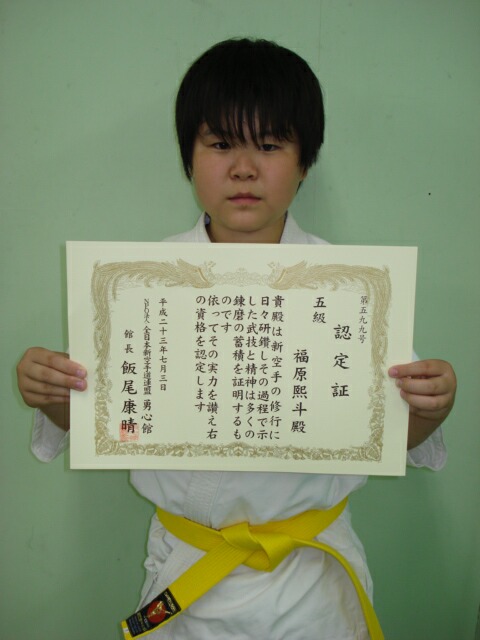 第五九九号
認定証
五級
福原熙斗殿
貴殿は新空手の修行に
日々研鑽しその過程で示
した武技と精神は多くの
錬磨の蓄積を証明するも
のです
依ってその実力を讃え右
の資格を認定します
平成二十三年七月三日
NPO法人 全日本新空手道連盟 勇心館
館長 飯尾康晴